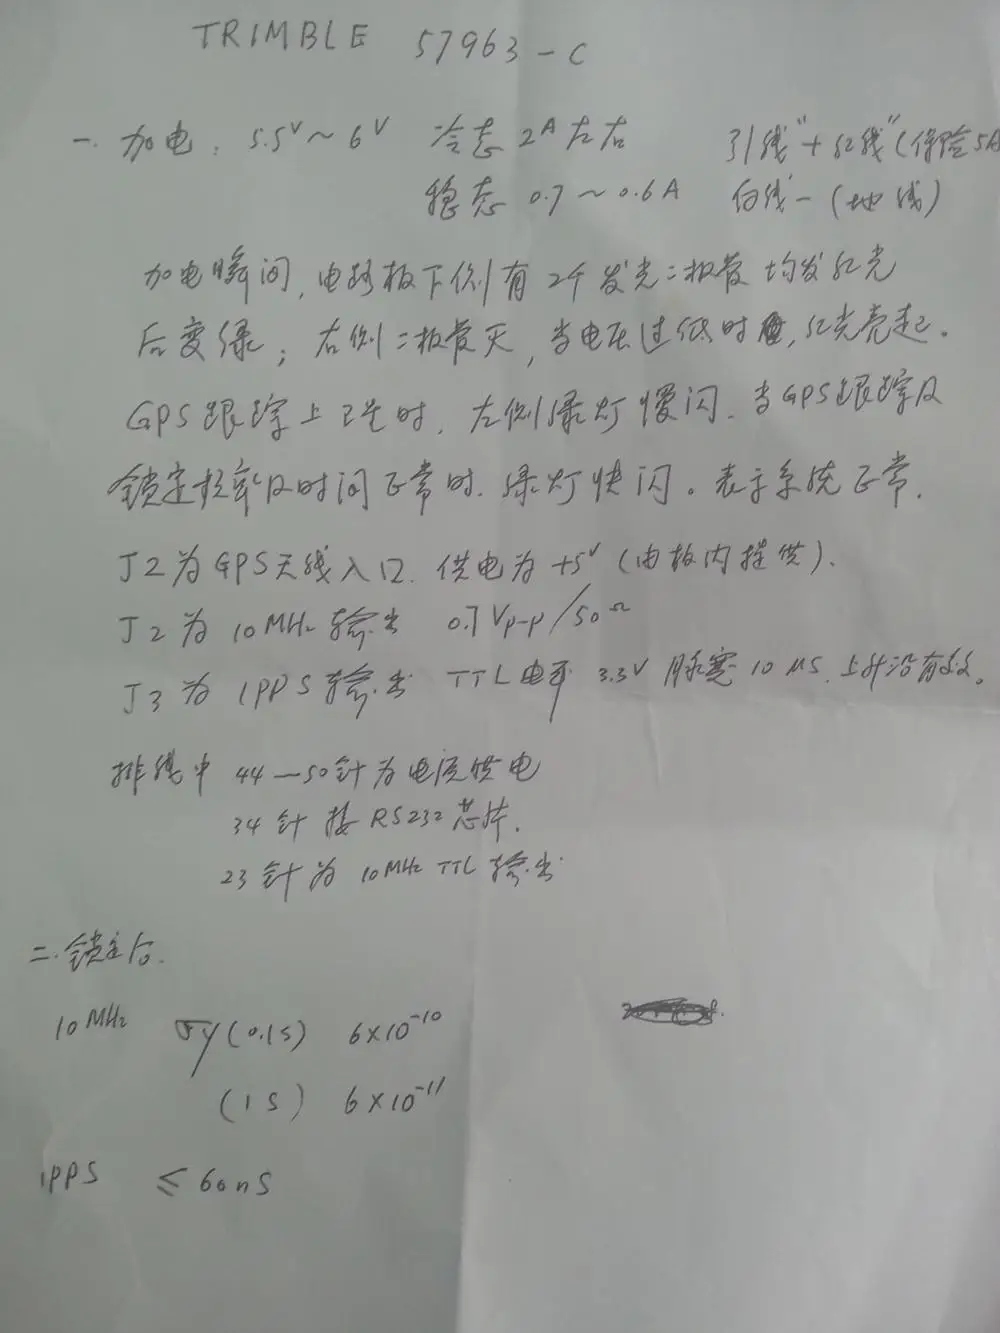 TRIMBLE 57963-C
一. 加电: 5.5V~6V 冷态 2A左右 引线"+红线"(保险5A
稳态 0.7~0.6A 白线-(地线)
加电瞬间,电路板下侧有2个发光二极管均发红光
后变绿;右侧二极管灭,当电压过低时,红光亮起。
GPS跟踪上卫星时,左侧绿灯慢闪.当GPS跟踪及
锁定频率及时间正常时.绿灯快闪。表示系统正常.
J2为GPS天线入口.供电为+5V(由板内提供).
J2为10MHz输出 0.7Vp-p/50Ω
J3为1PPS输出 TTL电平 3.3V 脉宽10μS.上升沿有效。
排线中 44—50针为电源供电
34针 接RS232芯片.
23针为 10MHz TTL输出
二.锁定后.
10MHz σy(0.1S) 6×10⁻¹⁰
(1S) 6×10⁻¹¹
1PPS ≤60nS